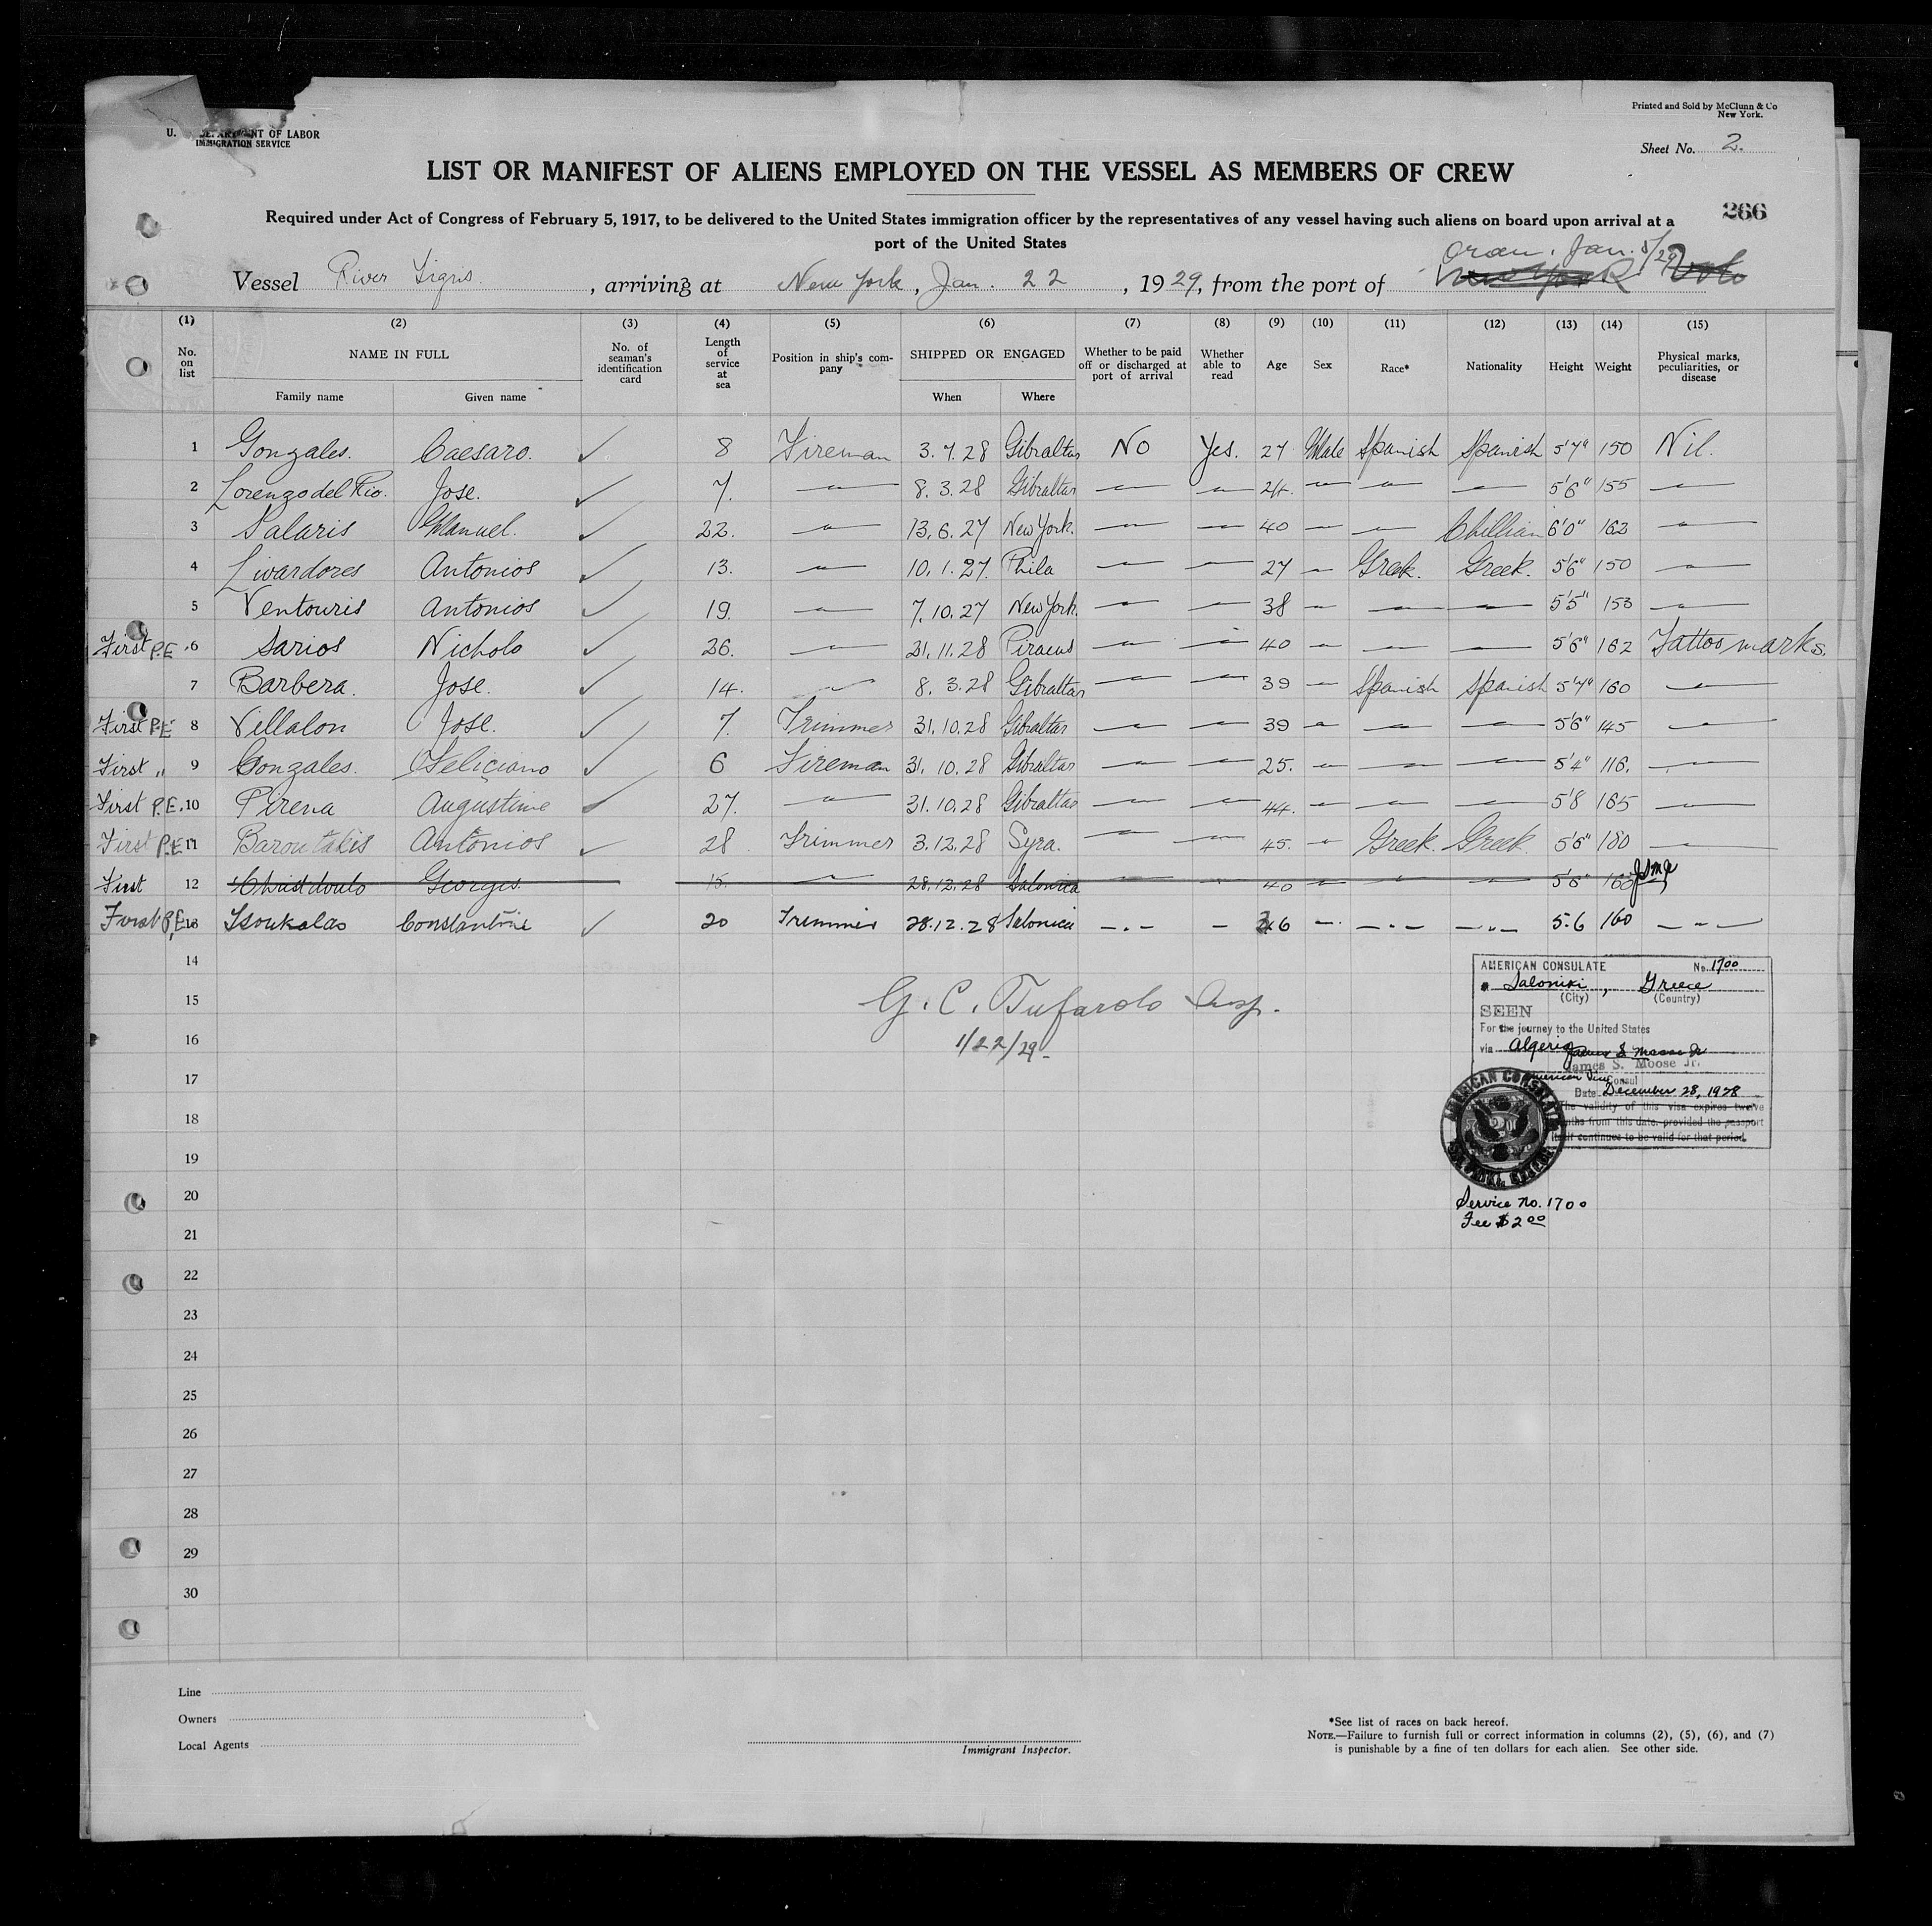 Printed and Sold by McClunn & Co
New York.
U. DEPARTMENT OF LABOR
IMMIGRATION SERVICE
Sheet No. 2.
LIST OR MANIFEST OF ALIENS EMPLOYED ON THE VESSEL AS MEMBERS OF CREW
Required under Act of Congress of February 5, 1917, to be delivered to the United States immigration officer by the representatives of any vessel having such aliens on board upon arrival at a
266
port of the United States
Oran, Jan. 5/29
Vessel River Tigris. , arriving at New York, Jan. 22 , 1929, from the port of New York Volo
(1) (2) (3) (4) (5) (6) (7) (8) (9) (10) (11) (12) (13) (14) (15)
No. on list NAME IN FULL Family name Given name No. of seaman's identification card Length of service at sea Position in ship's company SHIPPED OR ENGAGED When Where Whether to be paid off or discharged at port of arrival Whether able to read Age Sex Race* Nationality Height Weight Physical marks, peculiarities, or disease
1 Gonzales. Caesaro. ✓ 8 Fireman 3.7.28 Gibraltar No Yes. 27 Male Spanish Spanish 5'7" 150 Nil.
2 Lorenzo del Rio. Jose. ✓ 7. — 8.3.28 Gibraltar — — 24. — — — 5'6" 155 —
3 Salaris Manuel. ✓ 22. — 13.6.27 New York. — — 40 — — Chillian 6'0" 162 —
4 Livardores Antonios ✓ 13. — 10.1.27. Phila — — 27 — Greek. Greek. 5'6" 150 —
5 Ventouris Antonios ✓ 19. — 7.10.27 New York. — — 38 — — — 5'5" 153 —
First P.E 6 Sarios Nicholo ✓ 26. — 21.11.28 Piraeus — — 40 — — — 5'6" 162 Tattoo marks.
7 Barbera. Jose. ✓ 14. — 8.3.28 Gibraltar — — 39 — Spanish Spanish 5'7" 160 —
First P.E 8 Villalon Jose. ✓ 7. Trimmer 31.10.28 Gibraltar — — 39 — — — 5'6" 145 —
First " 9 Gonzales. Feliciano ✓ 6 Fireman 31.10.28 Gibraltar — — 25. — — — 5'4" 116. —
First P.E. 10 Pirena Augustine ✓ 27. — 31.10.28 Gibraltar — — 44. — — — 5'8 165 —
First P.E 11 Baroutakis Antonios ✓ 28 Trimmer 3.12.28 Syra. — — 45. — Greek. Greek. 5'6" 180 —
First 12 Christdoulo Georges 15. — 28.12.28 Salonica — — 40 — — — 5'6" 160 JSMJr
First P.E. 13 Tsoukalas Constantine ✓ 20 Trimmer 28.12.28 Salonica —.— — 46 —. —.— —..— 5.6 160 — — —
14
AMERICAN CONSULATE No. 1700
Saloniki, Greece
(City) (Country)
15
G. C. Tufarolo Insp.
SEEN
For the journey to the United States
16
1/22/29
via Algeria James S Moose Jr
James S. Moose Jr.
17
American Vice Consul
Date December 28, 1928
The validity of this visa expires twelve
months from this date, provided the passport
itself continues to be valid for that period.
AMERICAN CONSULATE
18
19
20
Service No. 1700
Fee $2.00
21
22
23
24
25
26
27
28
29
30
Line
Owners
Local Agents
Immigrant Inspector.
*See list of races on back hereof.
NOTE.—Failure to furnish full or correct information in columns (2), (5), (6), and (7)
is punishable by a fine of ten dollars for each alien. See other side.